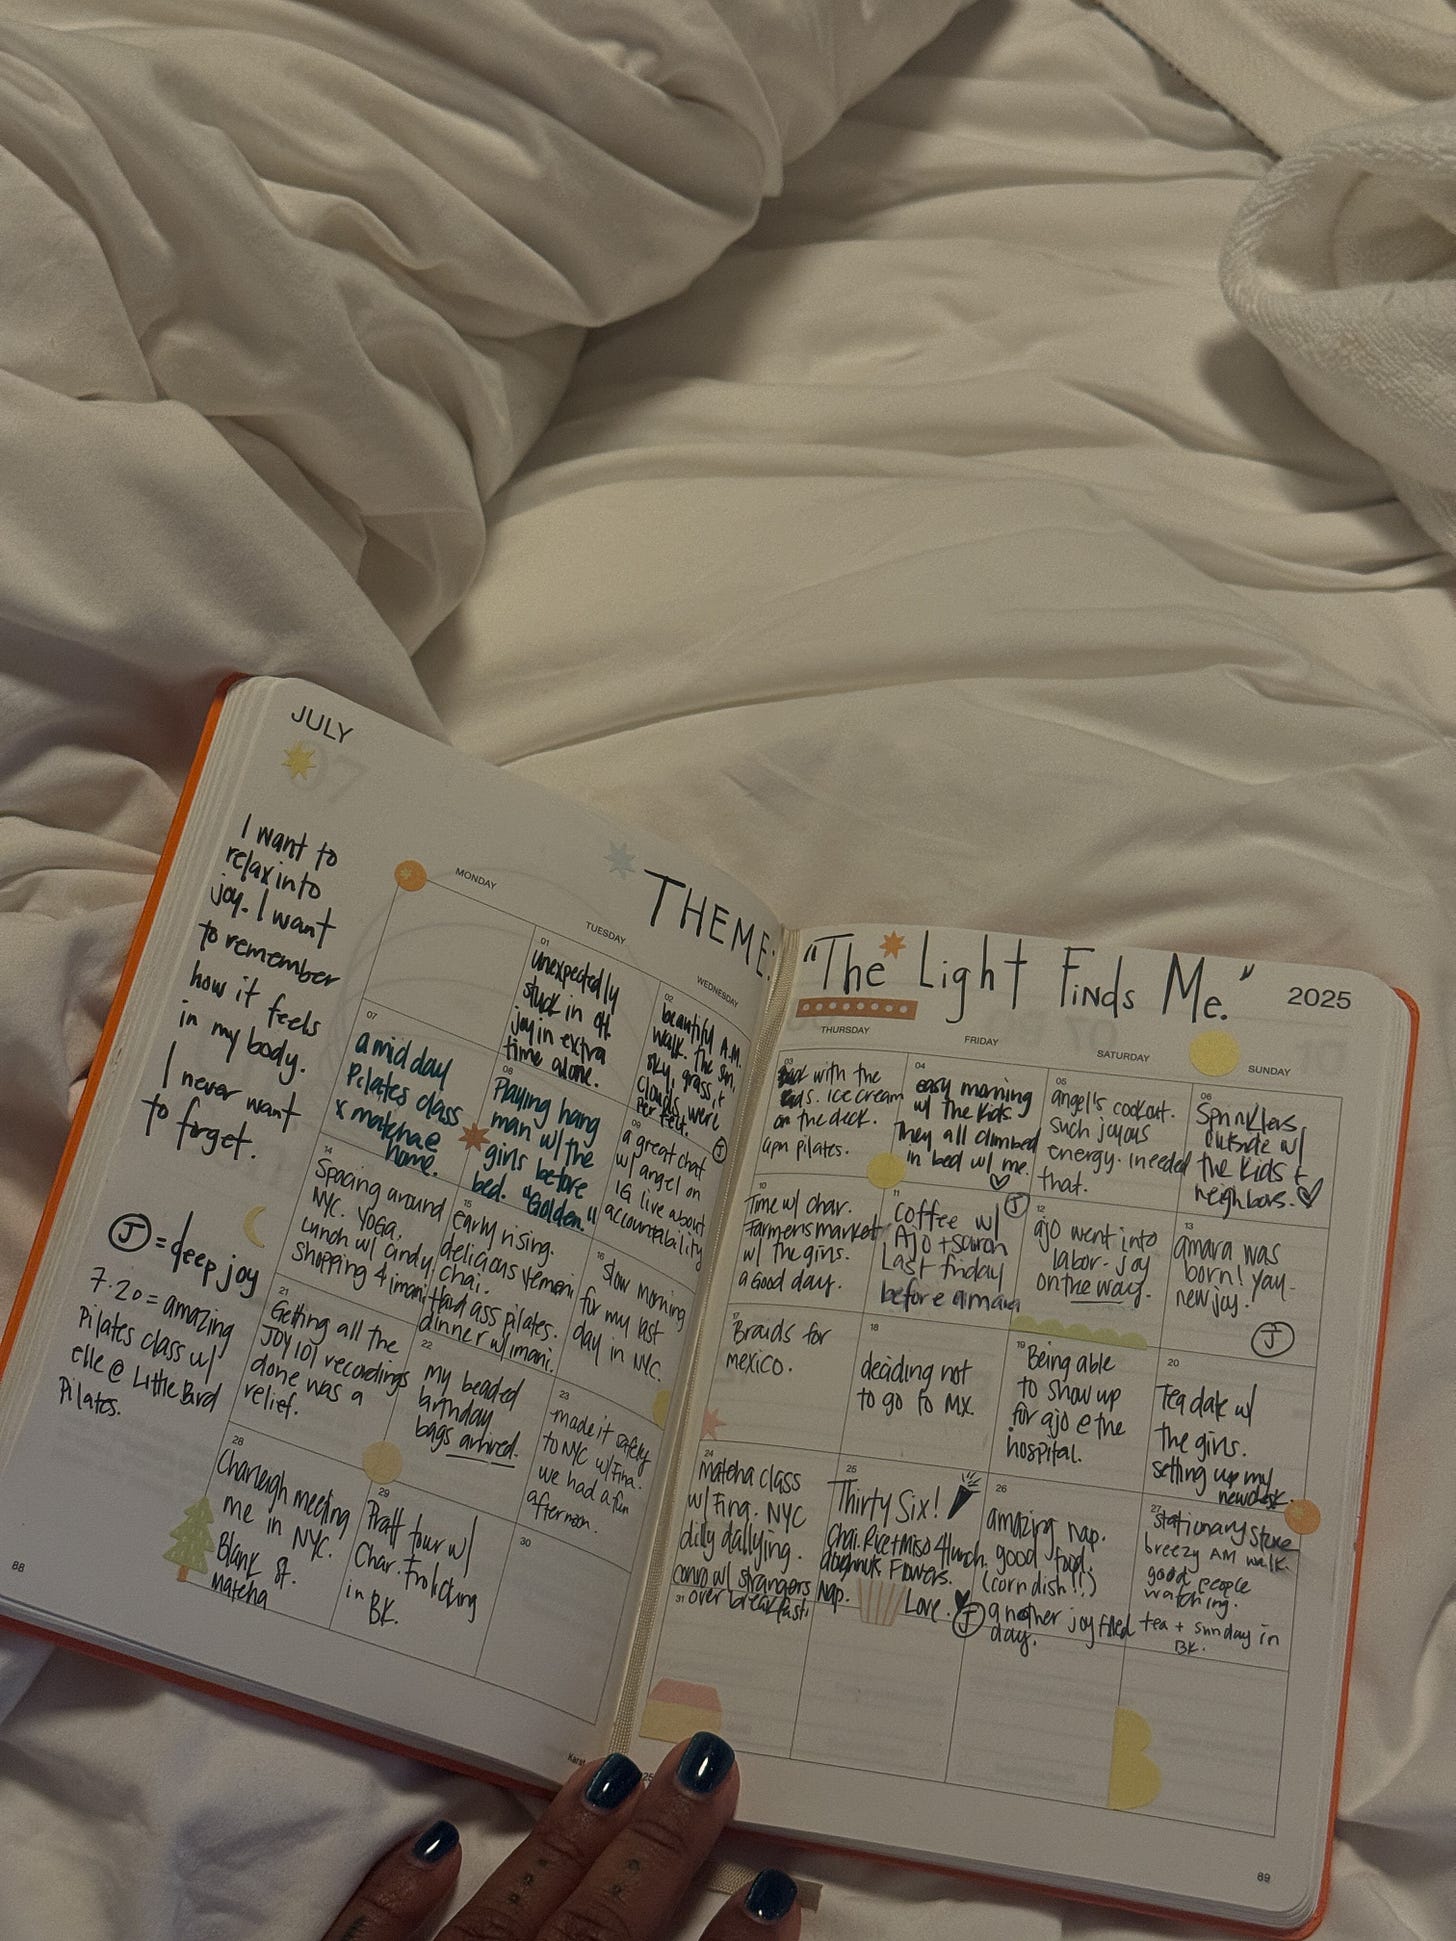 JULY
07
I want to
relax into
joy. I want
to remember
how it feels
in my body.
I never want
to forget.
J = deep joy
7.20 = amazing
Pilates class w/
elle @ Little Bird
Pilates.
88
THEME:
MONDAY
TUESDAY
WEDNESDAY
01
unexpectedly
stuck in atl.
joy in extra
time alone.
02
beautiful A.M.
walk. the sun,
sky, grass, +
clouds were
perfect.
J
07
a mid day
Pilates class
x matcha @
home.
08
Playing hang
man w/ the
girls before
bed. "Golden."
09
a great chat
w/ angel on
IG live about
accountability
14
Spacing around
NYC. Yoga.
Lunch w/ Cindy
Shopping 4 imani
15
early rising.
delicious Yemeni
chai.
Hard ass pilates.
dinner w/ imani.
16
Slow morning
for my last
day in NYC.
21
Getting all the
JOY 101 recordings
done was a
relief.
22
my beaded
birthday
bags arrived.
23
made it safely
to NYC w/ Fina.
we had a fun
afternoon.
28
Charleigh meeting
me in NYC.
Blank St.
matcha
29
Pratt tour w/
Char. Frolicking
in BK.
30
"The Light Finds Me."
2025
THURSDAY
FRIDAY
SATURDAY
SUNDAY
03
with the
kids. ice cream
on the deck.
4pm pilates.
04
easy morning
w/ the kids.
They all climbed
in bed w/ me.
05
angel's cookout.
such joyous
energy. i needed
that.
06
Sprinklers
outside w/
the kids +
neighbors.
10
Time w/ char.
Farmers market
w/ the girls.
a Good day.
11
J
coffee w/
Ajo + saron
Last friday
before amara
12
ajo went into
labor - joy
on the way.
13
amara was
born! yay -
new joy.
J
17
Braids for
mexico.
18
deciding not
to go to MX.
19
Being able
to show up
for ajo @ the
hospital.
20
Tea date w/
the girls.
setting up my
new desk.
24
matcha class
w/ Fina. NYC
dilly dallying.
convo w/ strangers
over breakfast.
25
Thirty Six!
Chai. Rice + Miso 4 lunch.
doughnut. Flowers.
Nap.
Love.
J
26
amazing nap.
good food.
(corn dish!!)
another joy filled
day.
27
Stationary store
breezy AM walk.
good people
watching.
tea + sunday in
BK.
31
89